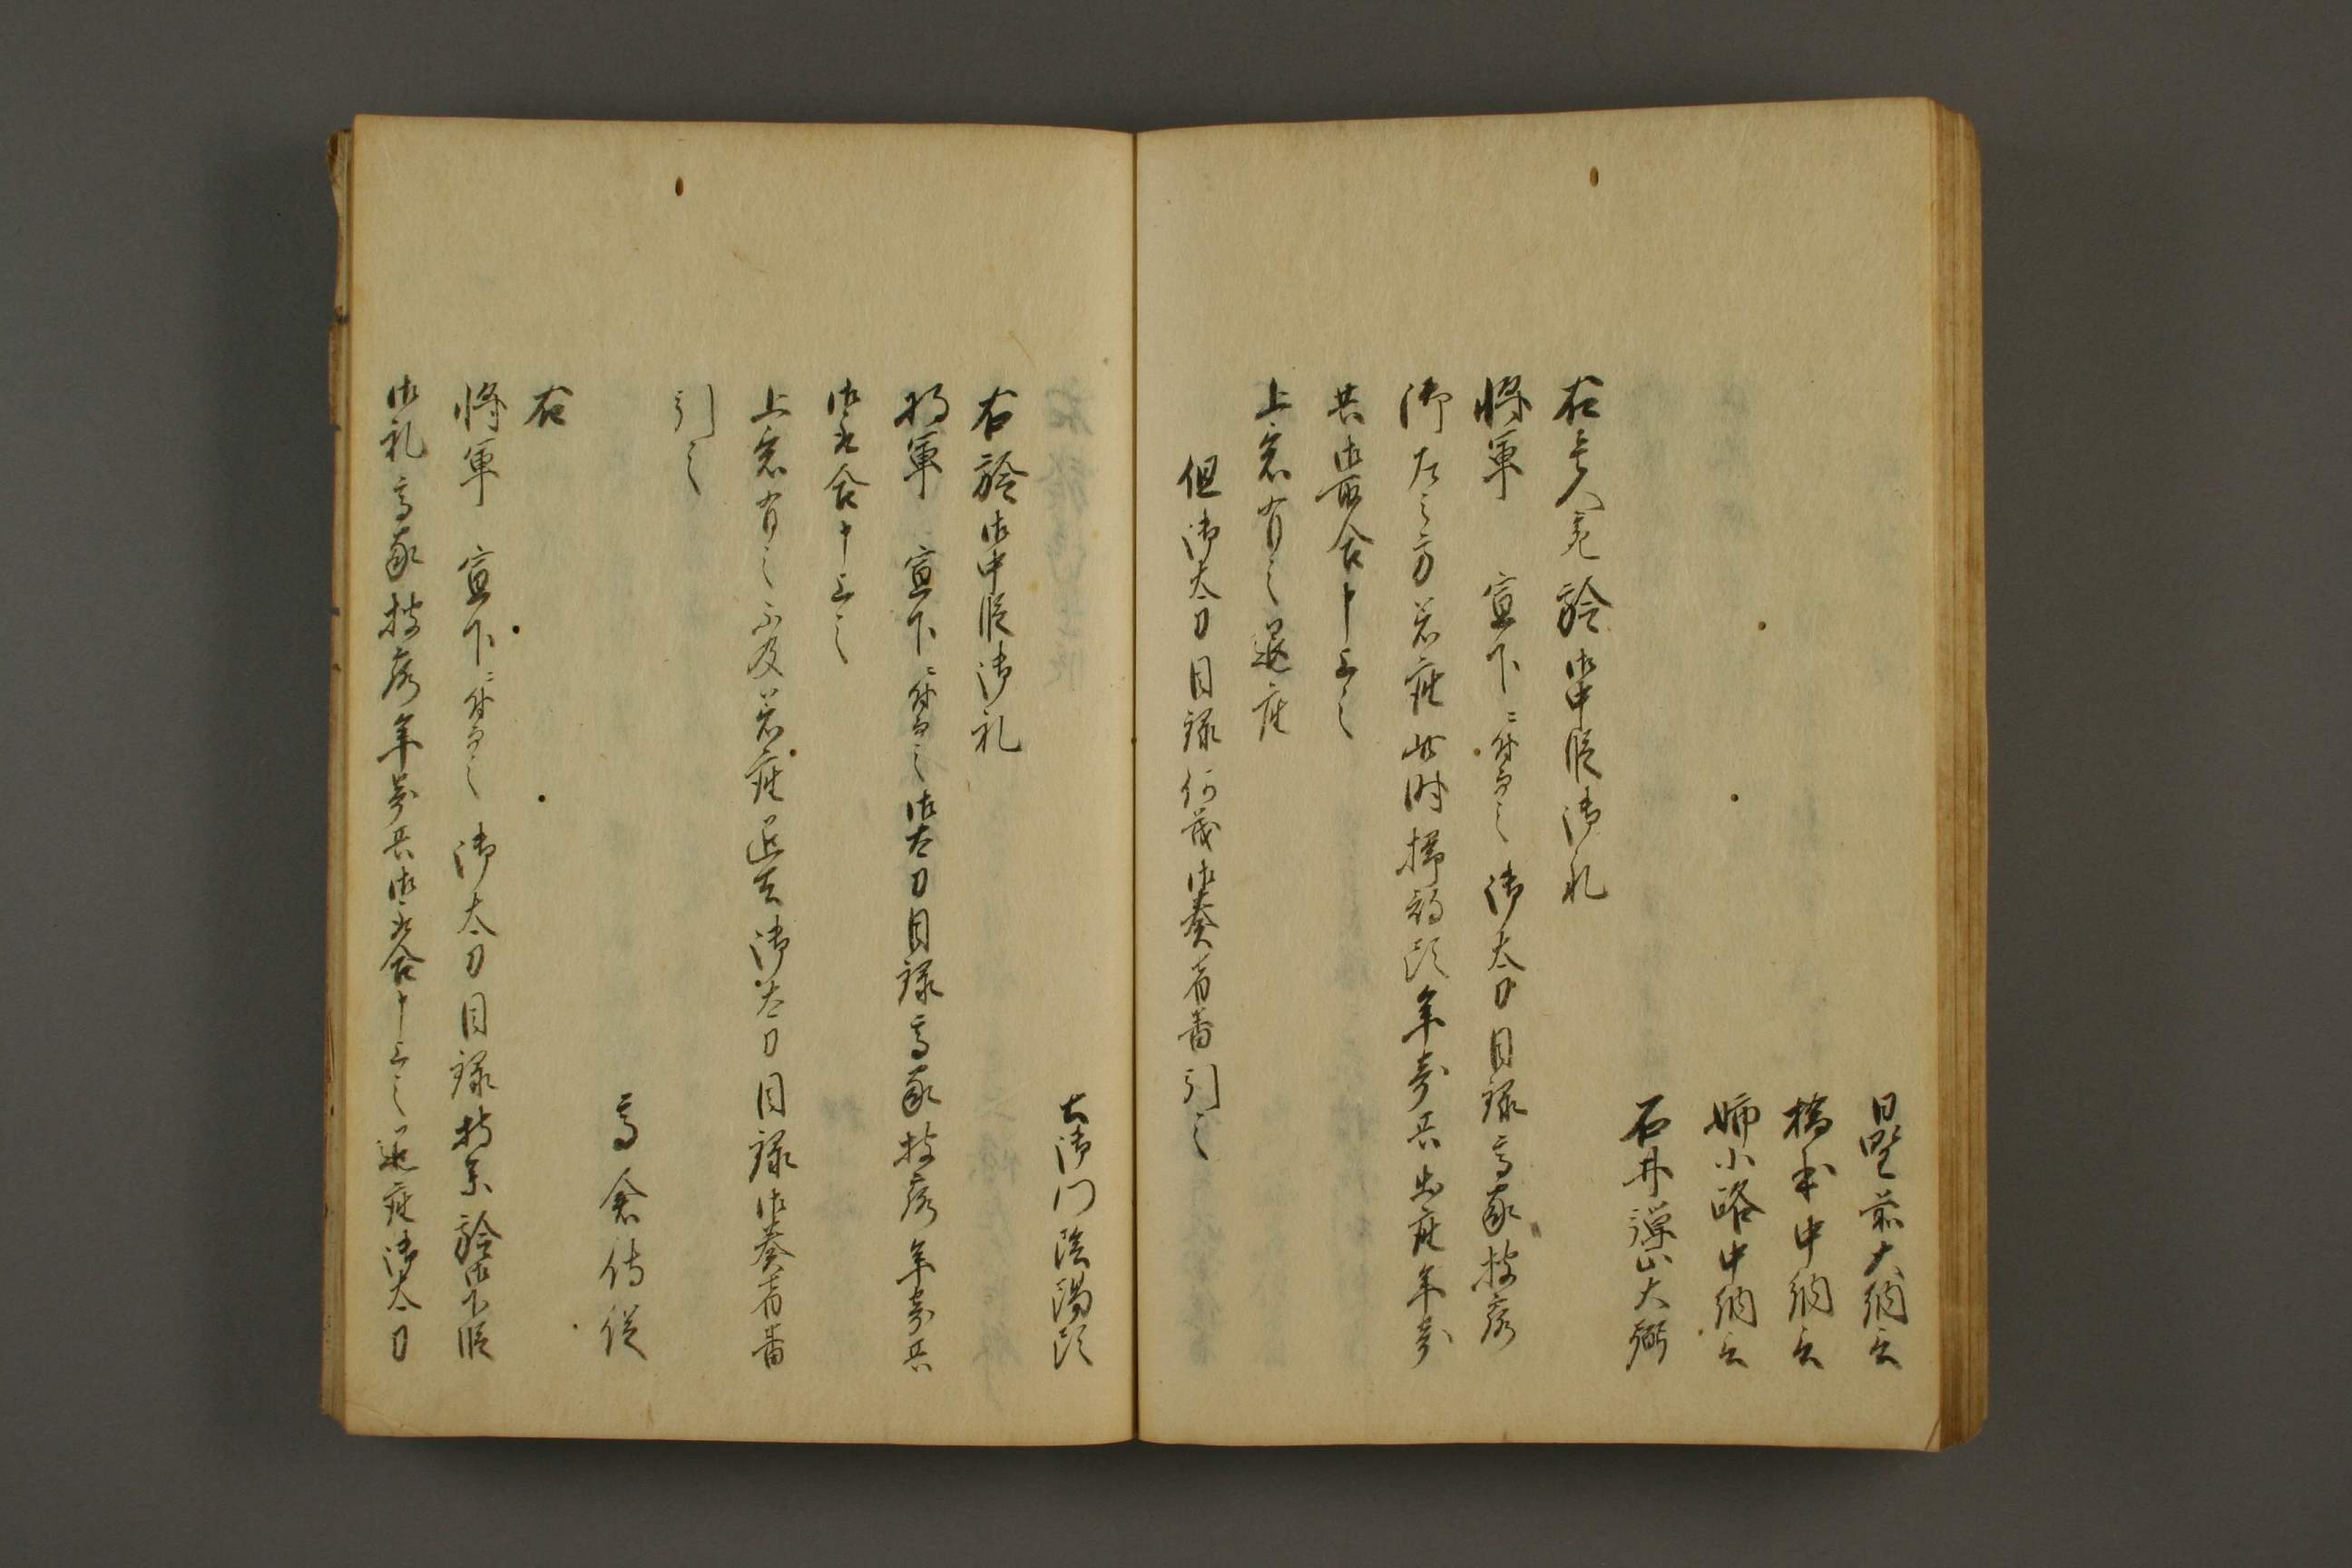 日野前大納言
橋本中納言
姉小路中納言
石井弾正大弼
右壱人充於御中段御礼
将軍　宣下ニ付而之御太刀目録高家披露
御左之方着座此時掃部頭年寄共出座年寄
共御取合申上之
上意有之退座
但御太刀目録何茂御奏者番引之
土御門陰陽頭
右於御中段御礼
将軍　宣下ニ付而之御太刀目録高家披露年寄共
御取合申上之
上意有之不及着座退去御太刀目録御奏者番
引之
高倉侍従
右
将軍　宣下ニ付而之　御太刀目録持参於御下段
御礼高家披露年寄共御取合申上之退座御太刀